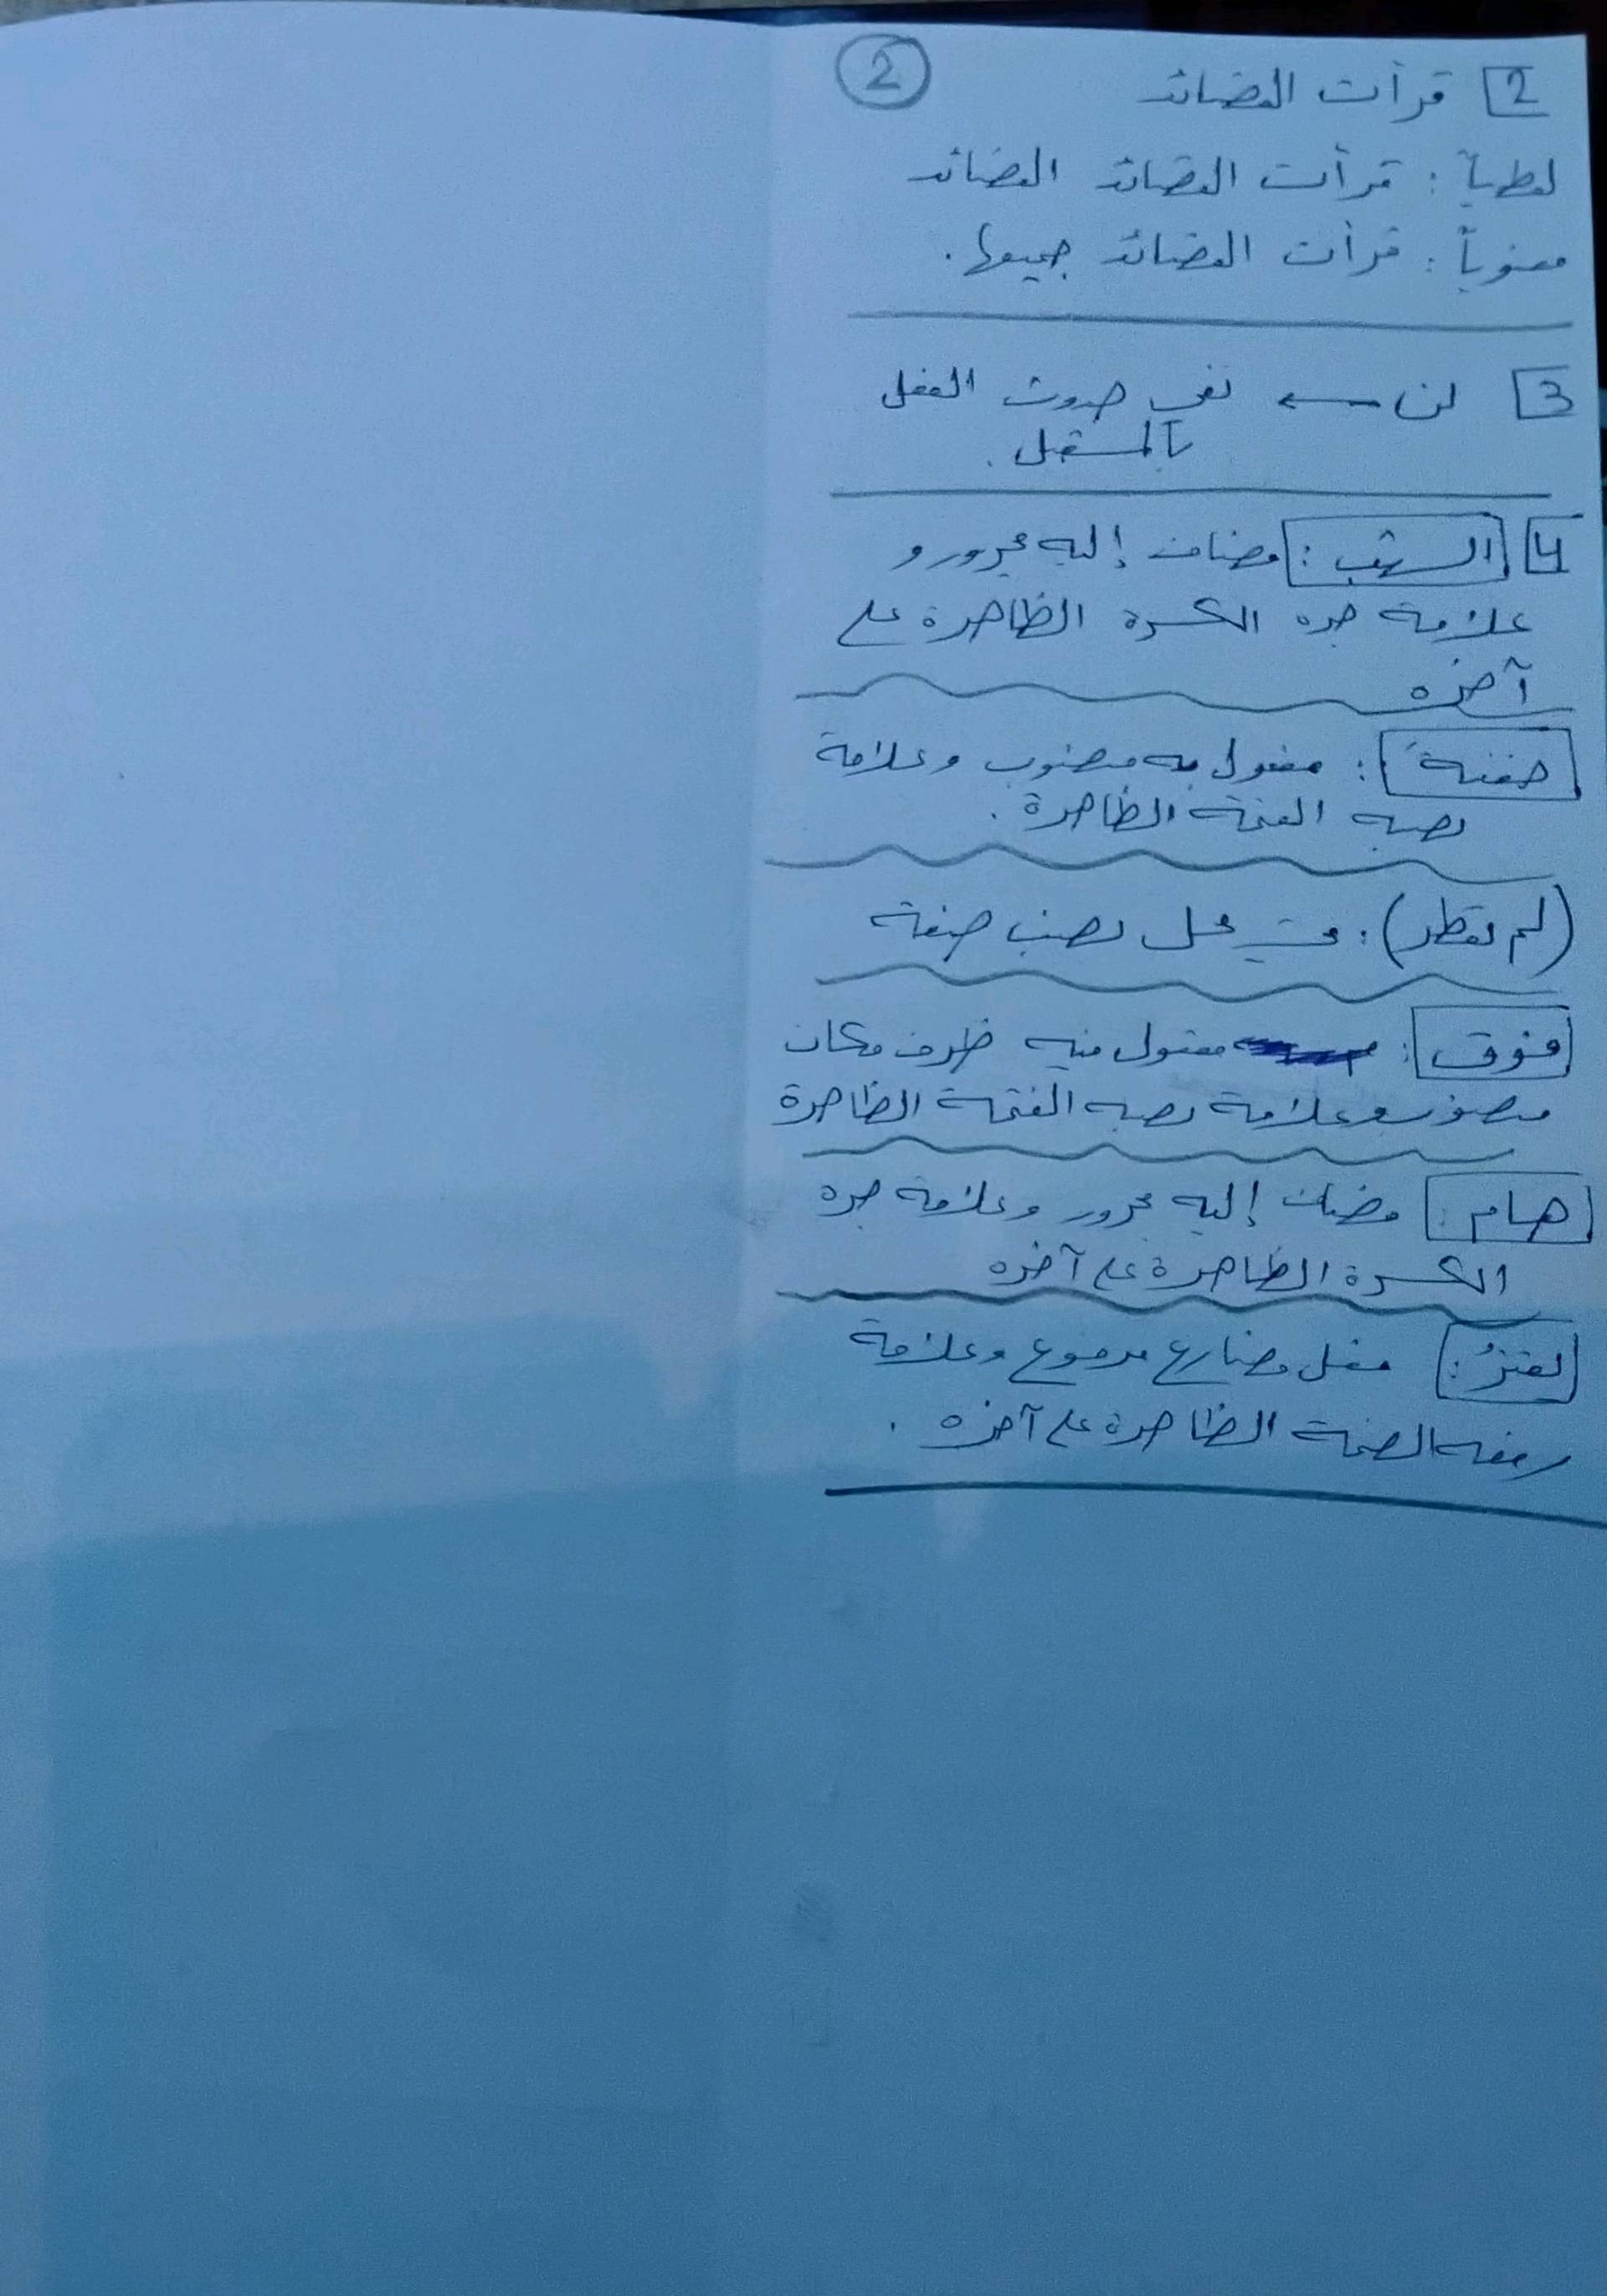 2
2 قرأت القصائد
لفظياً : قرأت القصائد القصائد
معنوياً : قرأت القصائد جميعها .
3 لن ← نفي حدوث الفعل
بالمستقبل .
4 الشهب : مضاف إليه مجرور و
علامة جره الكسرة الظاهرة على
آخره
حفنةً : مفعول به منصوب وعلامة
نصبه الفتحة الظاهرة .
(لم تقطر) : في محل نصب صفة
فوق : مفعول فيه ظرف مكان
منصوب وعلامة نصبه الفتحة الظاهرة
هام : مضاف إليه مجرور وعلامة جره
الكسرة الظاهرة على آخره
فعل مضارع مرفوع وعلامة
رفعه الضمة الظاهرة على آخره .